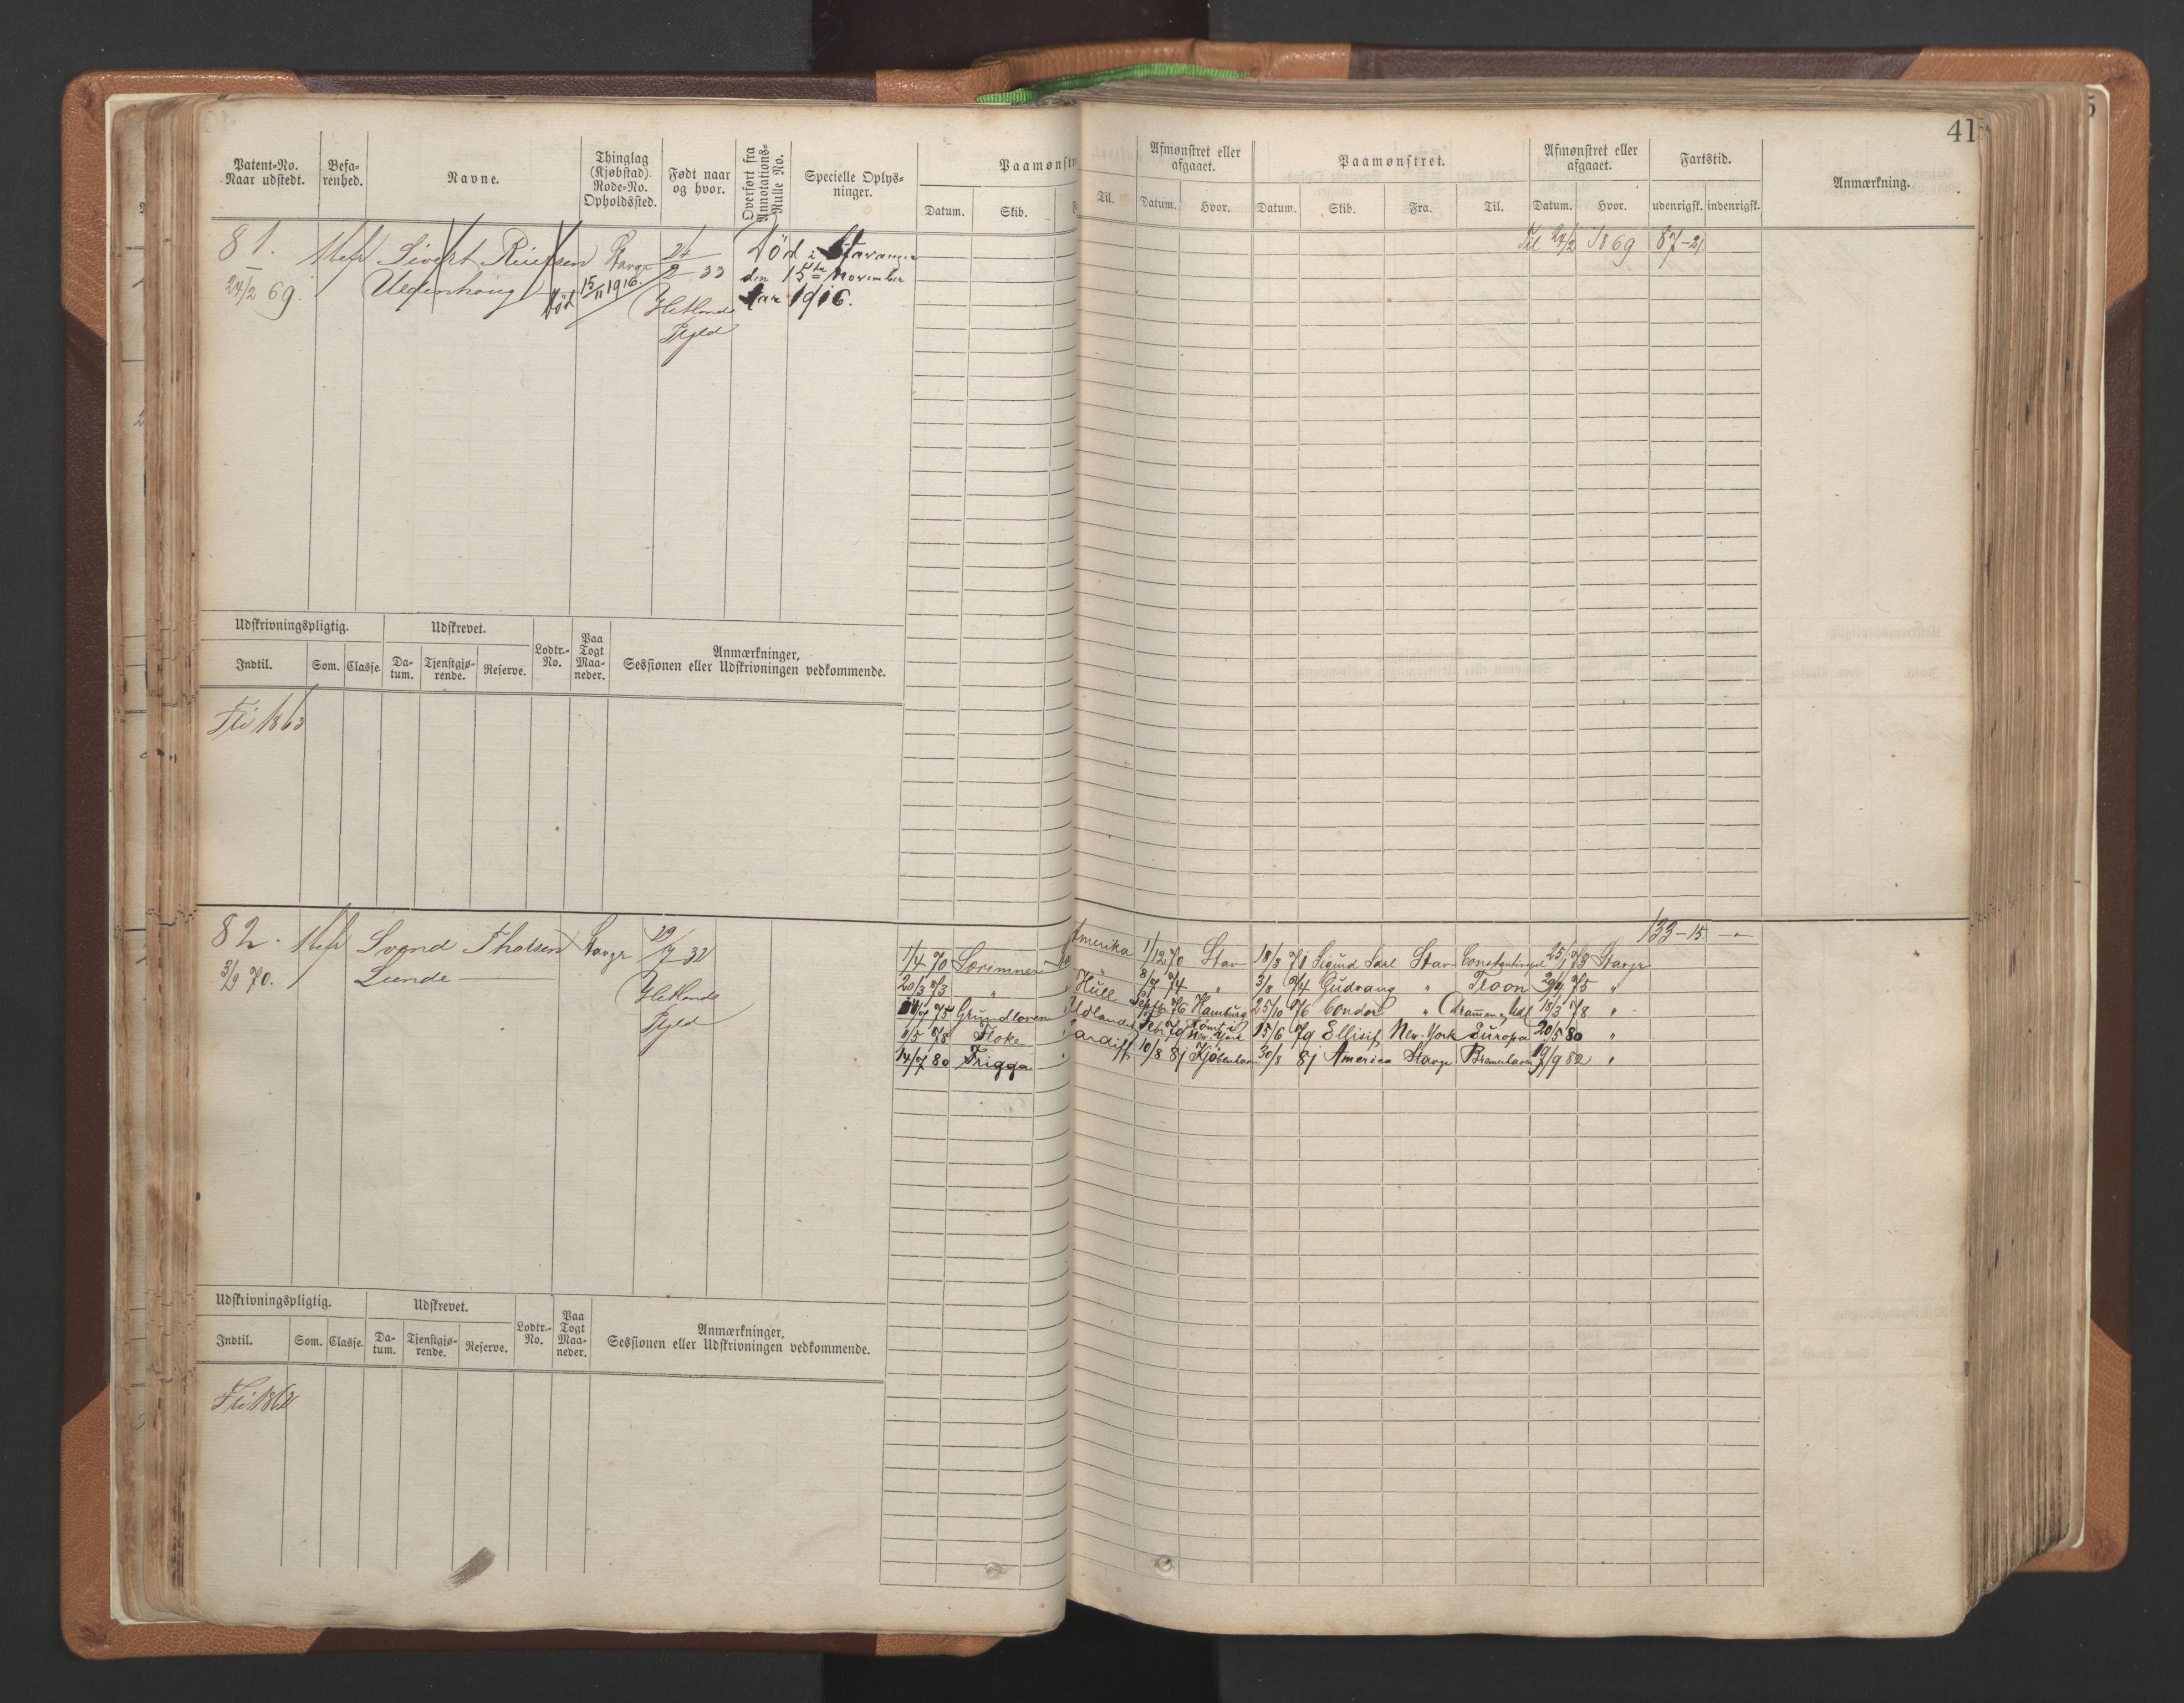 41
Patent-No. Naar udstedt.
Befa-renhed.
Navne.
Thinglag (Kjøbstad). Rode-No. Opholdssted.
Født naar og hvor.
Overført fra Annotations-Rulle No.
Specielle Oplys-ninger.
Paamønstre
Datum. Skib.
Til.
Afmønstret eller afgaaet.
Datum. Hvor.
Paamønstret.
Datum. Skib. Fra. Til.
Afmønstret eller afgaaet.
Datum. Hvor.
Fartstid.
udenrigsk. indenrigsk.
Anmærkning.
81. Sivert Stavgr 24/2 33 Død i Stavanger
24/2 69. Død 15/11 1916. den 15de November
Hetlands Aar 1916.
Pgjld
Til 24/2 1869 87-21
Udskrivningspligtig. Udskrevet. Lodtr.-No. Paa Togt Maa-neder. Anmærkninger, Sessionen eller Udskrivningen vedkommende.
Indtil. Som. Classe. Da-tum. Tjenstgjø-rende. Reserve.
1863
82. Svend Tholsen Stavgr 32
3/3 70. Lunde
Hetlands
Pgjld
133-15
1/4 70 Amerika 1/12 70 Stav 18/3 71 Sigurd Jarl Stav Constantinopel 25/1 73 Stavgr
20/3 73 " " 8/7 74 " 3/8 74 Gudrang " Troon 75 "
75 Grundloven " Hull Septbr 76 Hamburg 25/10 76 Condor " Drammen & Udl 18/3 78 "
78 Floke " Udlandet Febr 79 New York 15/6 79 Ellisif New-York Europa 20/5 80 "
14/7 80 Frigga " Cardiff 10/8 81 Kjøbenhavn 30/8 81 America Stavgr Bremerhaven 19/9 82 "
Udskrivningspligtig. Udskrevet. Lodtr.-No. Paa Togt Maa-neder. Anmærkninger, Sessionen eller Udskrivningen vedkommende.
Indtil. Som. Classe. Da-tum. Tjenstgjø-rende. Reserve.
1862